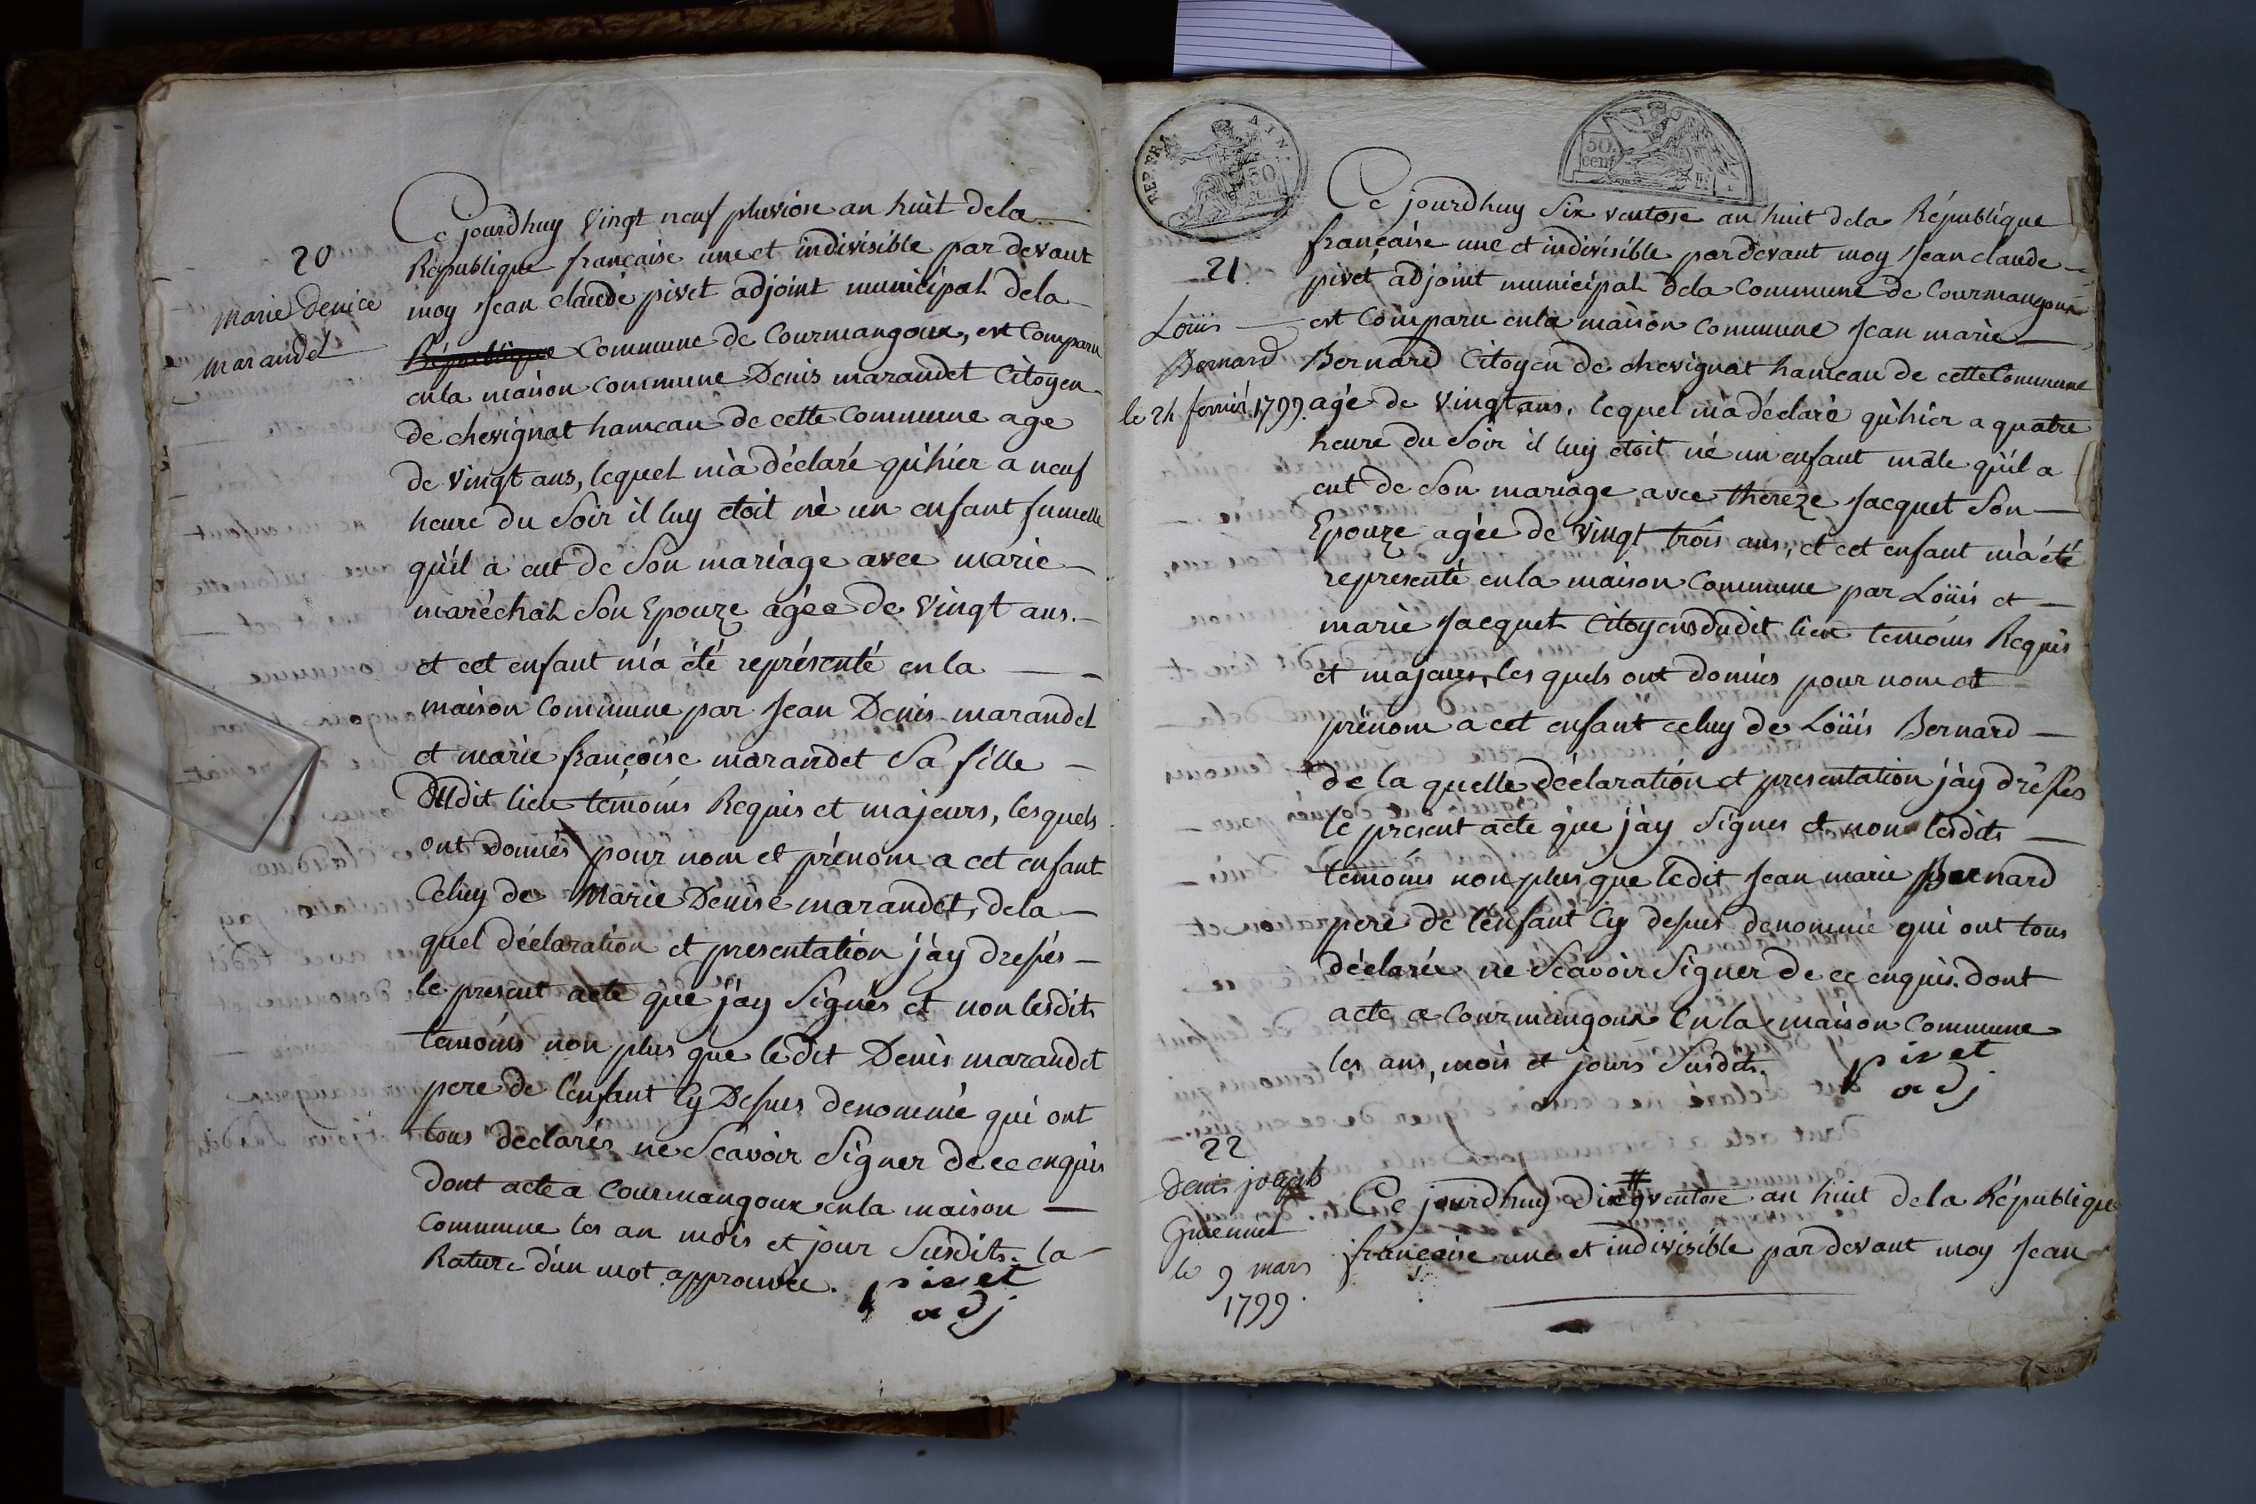 20
marie denice
marandet
Ce jourdhuy Vingt neuf pluviose an huit dela
République française une et indivisible par devant
moy Jean claude pivet adjoint municipal dela
République Commune de Courmangoux, est Comparu
enla maison commune Denis marandet Citoyen
de chevignat hameau de cette Commune age
de vingt ans, lequel m'a déclaré qu'hier a neuf
heure du Soir il luy etoit né un enfant fumelle
qu'il a eut de Son mariage avec marie
maréchal Son Epouze agée de Vingt ans.
et cet enfant m'a été représenté enla
maison Commune par Jean Denis marandet
et marie françoise marandet Sa fille
dudit lieu temoins Requis et majeurs, lesquels
ont donnés pour nom et prénom a cet enfant
Celuy de Marie Denise marandet, dela
quel déclaration et presentation j'ay dressés
le present acte que j'ay Signés et non lesdits
temoins non plus que ledit Denis marandet
pere de l'enfant Cy Dessus denommé qui ont
tous declarés ne Scavoir Signer de ce enquis
dont acte a Courmangoux enla maison
Commune les an mois et jour Susdits. la
Rature d'un mot approuvée. pivet
adj
REP. FRA. AIN.
50
50
cent
21.
Loüis
Bernard
le 24 fevrier 1799.
Ce jourdhuy Six ventose an huit dela République
française une et indivisible pardevant moy Jean claude
pivet adjoint municipal dela Commune de Courmangoux
est Comparu enla maison commune Jean marie
Bernard Citoyen de chevignat hameau de cette Commune
agé de vingt ans, lequel m'a déclaré qu'hier a quatre
heure du Soir il luy etoit né un enfant mâle qu'il a
eut de Son mariage avec thereze Jacquet Son
Epouze agée de Vingt trois ans, et cet enfant m'a été
representé enla maison Commune par Loüis et
marie Jacquet Citoyens dudit lieu temoins Requis
et majeurs, les quels ont donnés pour nom et
prénom a cet enfant celuy de Loüis Bernard
de la quelle déclaration et presentation j'ay dressés
le present acte que j'ay Signes et non lesdits
temoins non plus que ledit Jean marie Bernard
pere de l'enfant Cy dessus denommé qui ont tous
déclarés ne Scavoir Signer de ce enquis. dont
acte a Courmangoux Enla maison Commune
les ans, mois et jours Susdits. pivet
adj
22
Denis joseph
le 9 mars
1799.
Ce jourdhuy ventose an huit dela République
française une et indivisible par devant moy Jean